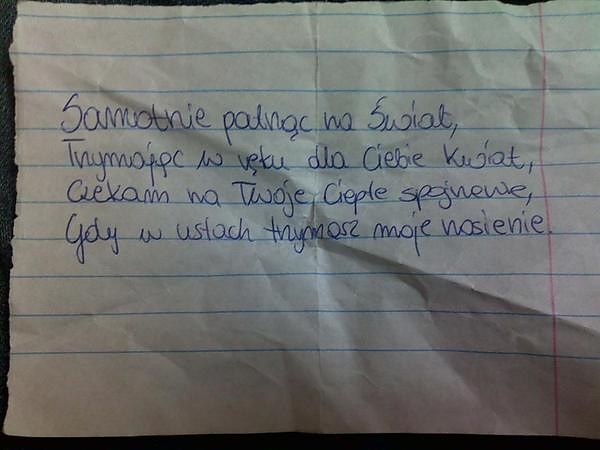 Samotnie patrząc na Świat,
Trzymając w ręku dla Ciebie Kwiat,
Czekam na Twoje, Ciepłe spojrzenie,
Gdy w ustach trzymasz moje nasienie.